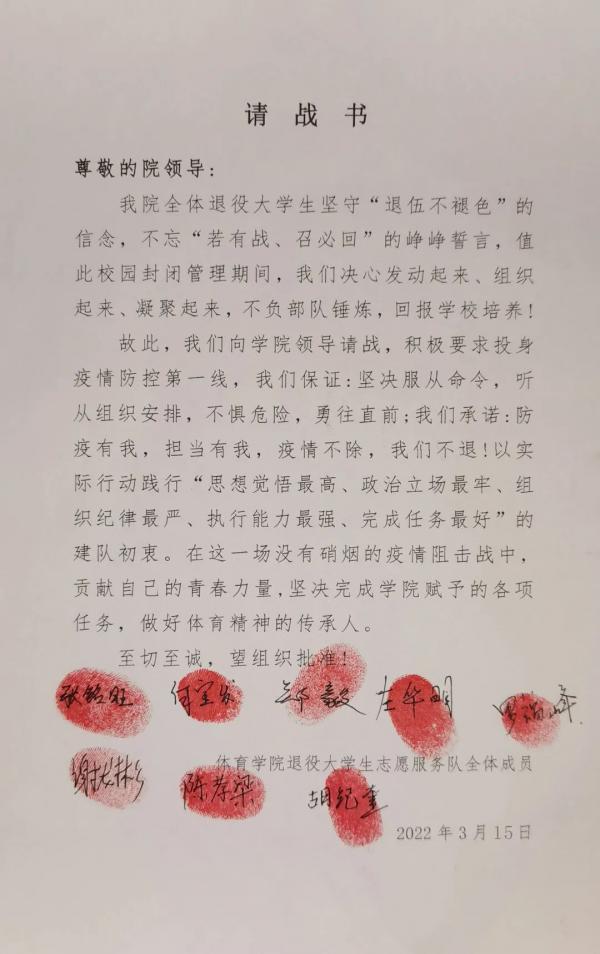 请战书
尊敬的院领导:
我院全体退役大学生坚守“退伍不褪色”的
信念，不忘“若有战、召必回”的铮铮誓言，值
此校园封闭管理期间，我们决心发动起来、组织
起来、凝聚起来，不负部队锤炼，回报学校培养!
故此，我们向学院领导请战，积极要求投身
疫情防控第一线，我们保证:坚决服从命令，听
从组织安排，不惧危险，勇往直前;我们承诺:防
疫有我，担当有我，疫情不除，我们不退!以实
际行动践行“思想觉悟最高、政治立场最牢、组
织纪律最严、执行能力最强、完成任务最好”的
建队初衷。在这一场没有硝烟的疫情阻击战中，
贡献自己的青春力量,坚决完成学院赋予的各项
任务，做好体育精神的传承人。
至切至诚，望组织批准!
左华明
体育学院退役大学生志愿服务队全体成员
陈荐梁 胡纪重
2022年3月15日